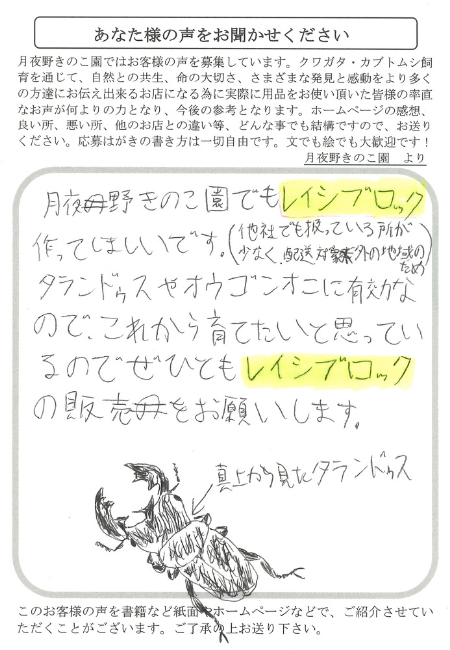 あなた様の声をお聞かせください
月夜野きのこ園ではお客様の声を募集しています。クワガタ・カブトムシ飼
育を通じて、自然との共生、命の大切さ、さまざまな発見と感動をより多く
の方達にお伝え出来るお店になる為に実際に用品をお使い頂いた皆様の率直
なお声が何よりの力となり、今後の参考となります。ホームページの感想、
良い所、悪い所、他のお店との違い等、どんな事でも結構ですので、お送り
ください。応募はがきの書き方は一切自由です。文でも絵でも大歓迎です！
月夜野きのこ園　より
月夜野きのこ園でもレイシブロック
作ってほしいです。(他社でも扱っている所が
少なく、配送対象外の地域の
ため)
タランドゥスやオウゴンオニに有効な
ので、これから育てたいと思ってい
るのでぜひともレイシブロック
の販売をお願いします。
真上から見たタランドゥス
このお客様の声を書籍など紙面やホームページなどで、ご紹介させてい
ただくことがございます。ご了承の上お送り下さい。